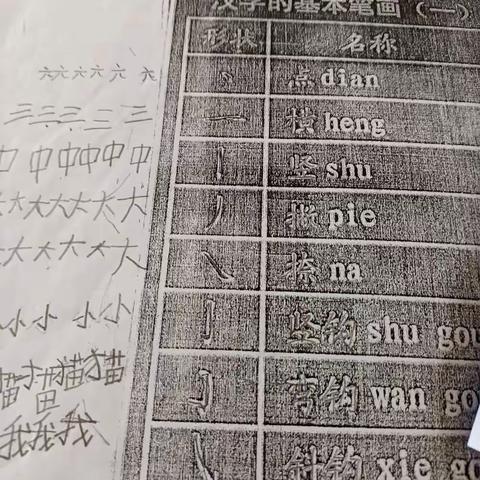 汉字的基本笔画(一)
形状 名称
点 dian
横 heng
竖 shu
撇 pie
捺 na
竖钩 shu gou
弯钩 wan go
斜钩 xie go
六六六六六 六
三三三三三 三
中中中中中中
大大大大大大
大大大大大大
小小小 小小
猫猫猫猫
我我我